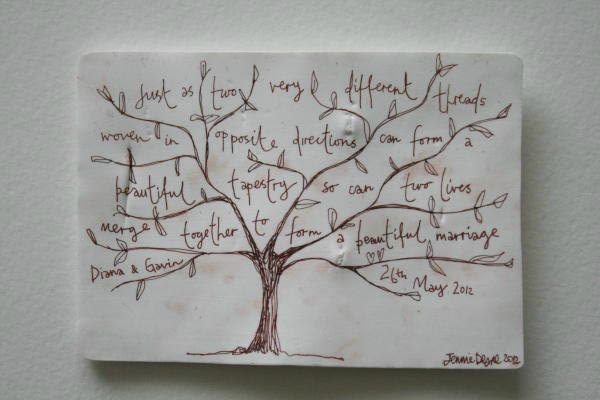 Just as two very different threads
woven in opposite directions can form a
beautiful tapestry so can two lives
merge together to form a beautiful marriage
Diana & Gavin
26th May 2012
Jennie Deane 2012